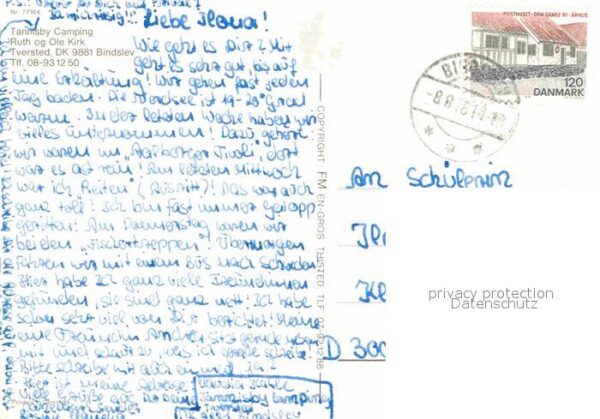 Nr. 77164
Tannisby Camping
Ruth og Ole Kirk
Tversted. DK 9881 Bindslev
Tlf. 08-93 12 50
Liebe Ilona!
Wie geht es Dir? Mir
geht es sehr gut, bis auf
eine Erkältung! Wir gehen fast jeden
Tag baden. Die Nordsee ist 19-20° Grad
warm. In der letzten Woche haben wir
vieles Unternommen! Dazu gehört
wir waren im „Aalborger Tivoli", dort
war es ast rein! Am letzten Mittwoch
war ich Reiten" (Ausritt)! Das war auch
ganz toll! Ich bin fast immer Galopp
geritten! Am Donnerstag waren wir
bei den „Fischertreppen"! Übermorgen
fahren wir mit einem Bus nach Schweden
Hier habe ich ganz viele Freundinnen
gefunden, sie sind ganz nett! Ich habe
schon sehr viel von Dir berichtet! Meine
eine Freundin Andrea sitzt gerade neben
mir und was ich gerade schreibe!
Bitte schreibe mir auch einmal, ja?
Hier ist meine Adresse:
Viele Grüße
Claudia
Tannisby Camping
Tversted
Bindslev
COPYRIGHT FM EN-GROS THISTED TLF
POSTHUSET · DEN GAMLE BY · ÅRHUS
120
DANMARK
An Schülerin
Il
Kl
D 300
privacy protection
Datenschutz